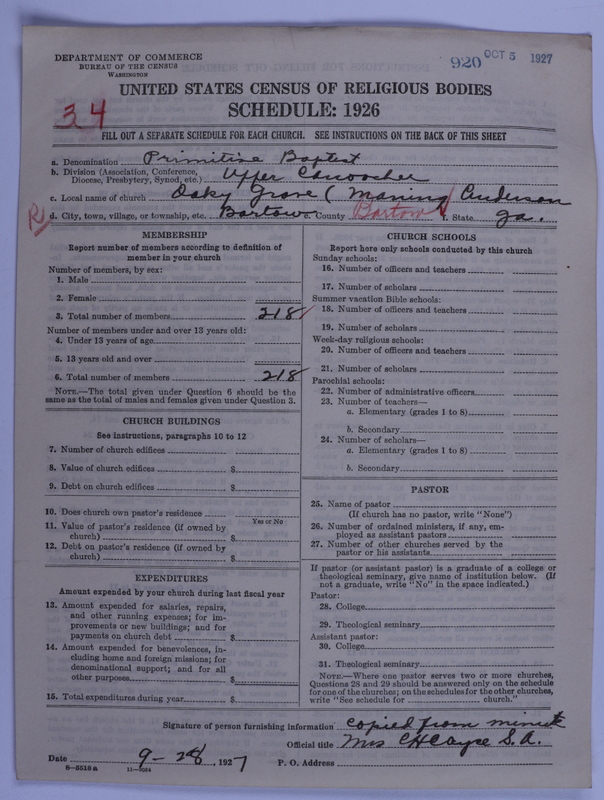 DEPARTMENT OF COMMERCE
BUREAU OF THE CENSUS
WASHINGTON
920 OCT 5 1927
UNITED STATES CENSUS OF RELIGIOUS BODIES
SCHEDULE: 1926
34
FILL OUT A SEPARATE SCHEDULE FOR EACH CHURCH. SEE INSTRUCTIONS ON THE BACK OF THIS SHEET
a. Denomination Primitive Baptist
b. Division (Association, Conference, Diocese, Presbytery, Synod, etc.) Upper Canoochee
c. Local name of church Oaky Grove (Maning Anderson
d. City, town, village, or township, etc. Bartow e. County Bartow f. State Ga.
MEMBERSHIP
Report number of members according to definition of
member in your church
Number of members, by sex:
1. Male
2. Female
3. Total number of members 218
Number of members under and over 13 years old:
4. Under 13 years of age
5. 13 years old and over
6. Total number of members 218
NOTE.—The total given under Question 6 should be the
same as the total of males and females given under Question 3.
CHURCH BUILDINGS
See instructions, paragraphs 10 to 12
7. Number of church edifices
8. Value of church edifices $
9. Debt on church edifices $
10. Does church own pastor's residence
Yes or No
11. Value of pastor's residence (if owned by
church) $
12. Debt on pastor's residence (if owned by
church) $
EXPENDITURES
Amount expended by your church during last fiscal year
13. Amount expended for salaries, repairs,
and other running expenses; for im-
provements or new buildings; and for
payments on church debt $
14. Amount expended for benevolences, in-
cluding home and foreign missions; for
denominational support; and for all
other purposes $
15. Total expenditures during year $
CHURCH SCHOOLS
Report here only schools conducted by this church
Sunday schools:
16. Number of officers and teachers
17. Number of scholars
Summer vacation Bible schools:
18. Number of officers and teachers
19. Number of scholars
Week-day religious schools:
20. Number of officers and teachers
21. Number of scholars
Parochial schools:
22. Number of administrative officers
23. Number of teachers—
a. Elementary (grades 1 to 8)
b. Secondary
24. Number of scholars—
a. Elementary (grades 1 to 8)
b. Secondary
PASTOR
25. Name of pastor
(If church has no pastor, write "None")
26. Number of ordained ministers, if any, em-
ployed as assistant pastors
27. Number of other churches served by the
pastor or his assistants
If pastor (or assistant pastor) is a graduate of a college or
theological seminary, give name of institution below. (If
not a graduate, write "No" in the space indicated.)
Pastor:
28. College
29. Theological seminary
Assistant pastor:
30. College
31. Theological seminary
NOTE.—Where one pastor serves two or more churches,
Questions 28 and 29 should be answered only on the schedule
for one of the churches; on the schedules for the other churches,
write "See schedule for church."
Signature of person furnishing information copied from minute
Official title Mrs C H Cayce S. A.
Date 9-28, 1927 P. O. Address